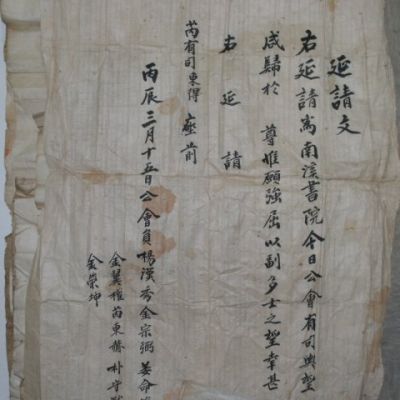 延請文
右延請爲南溪書院今日公會有司輿望
咸歸於 尊惟願強屈以副多士之望幸甚
右延請
芮有司東得 座前
丙辰三月十五日公會員楊漢秀金宗弼姜命
金翼權芮東 朴守
金榮坤